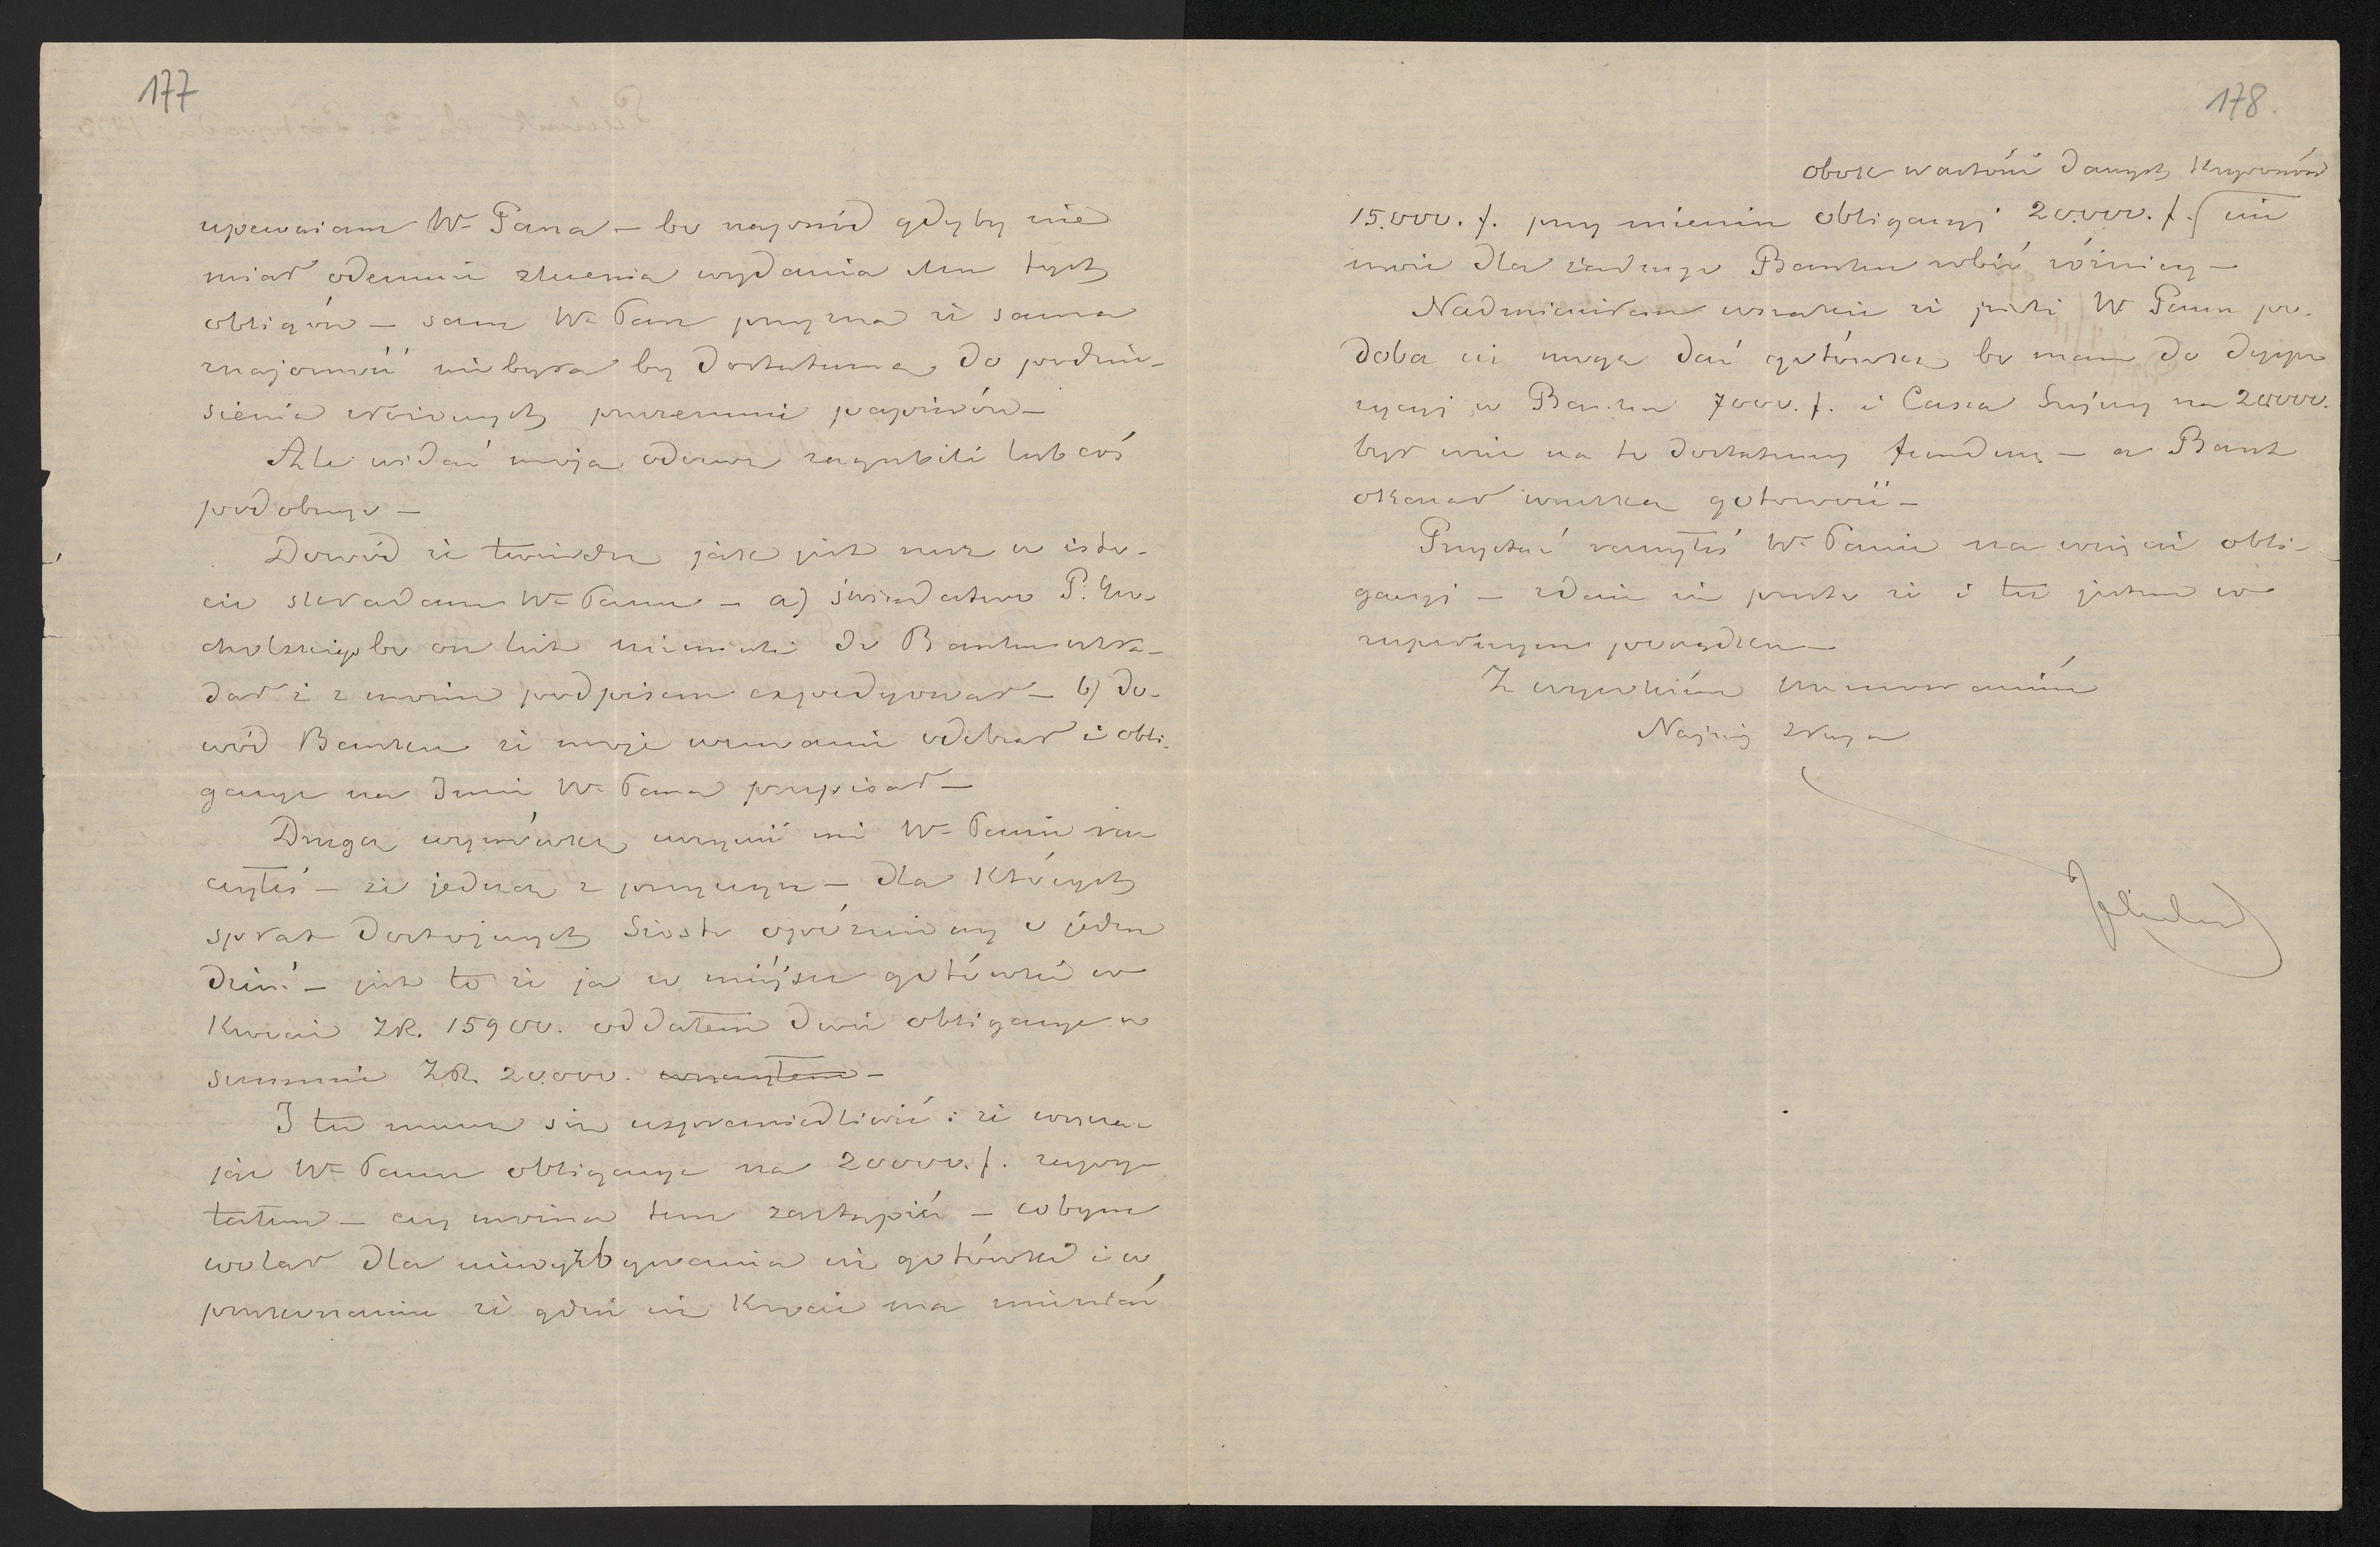 177
upewniam W. Pana – bo naprzód gdyby nie
miał odemnie zlecenia wydania Mu tych
obligów – sam W. Pan przyzna że sama
znajomość nie była by dostateczna do podnie-
sienia złożonych przezemnie papierów –
Ale widać moja odezwa zagubili lub coś
podobnego –
Dowód że twierdzę jak jest rzecz w isto-
cie składam W. Panu – a) świadectwo P.
bo on list niemiecki do Banku ukła-
dał i z moim podpisem expedyował – b) do-
wód Banku że moje wezwanie odebrał i obli-
gacye na Imie W. Pana przepisał –
Druga wymówka uczynić mi W. Panie ra-
czyłeś – że jedna z przyczyn – dla których
spłat Dostojnych Sióstr opóźnion o jeden
dzień – jest to że ja w miejsce gotówki w
Kwocie ZR. 15900. oddałem dwie obligacye w
summie ZR. 20.000. wręczyłem –
I tu muszę się usprawiedliwić: że wręcza-
jąc W. Panu obligacye na 20000. f. zapy-
tałem – czy można tem zastąpić – cobym
wolał dla niewyzbywania się gotówki i w
przekonaniu że gdzie się Kwocie ma
178.
obok wartości danych Kuponów
15.000. f. przy mieniu obligacyi 20.000. f. nie
może dla żadnego Banku robić różnicy –
Nadmieniłem wszakże że jeżeli W. Panu po-
doba się mogę dać gotówkę bo mam do dyspo
zycyi w Banku 7000. f. i Cassa na 20000.
był więc na to dostateczny fundusz – a Bank
okazał wszelką gotowość –
Przystać raczyłeś W. Panie na wzięcie obli-
gacyi – zdaje się przeto że i tu jestem w
zupełnym porządku –
Z wysokiém uszanowaniem
Najniż sługa